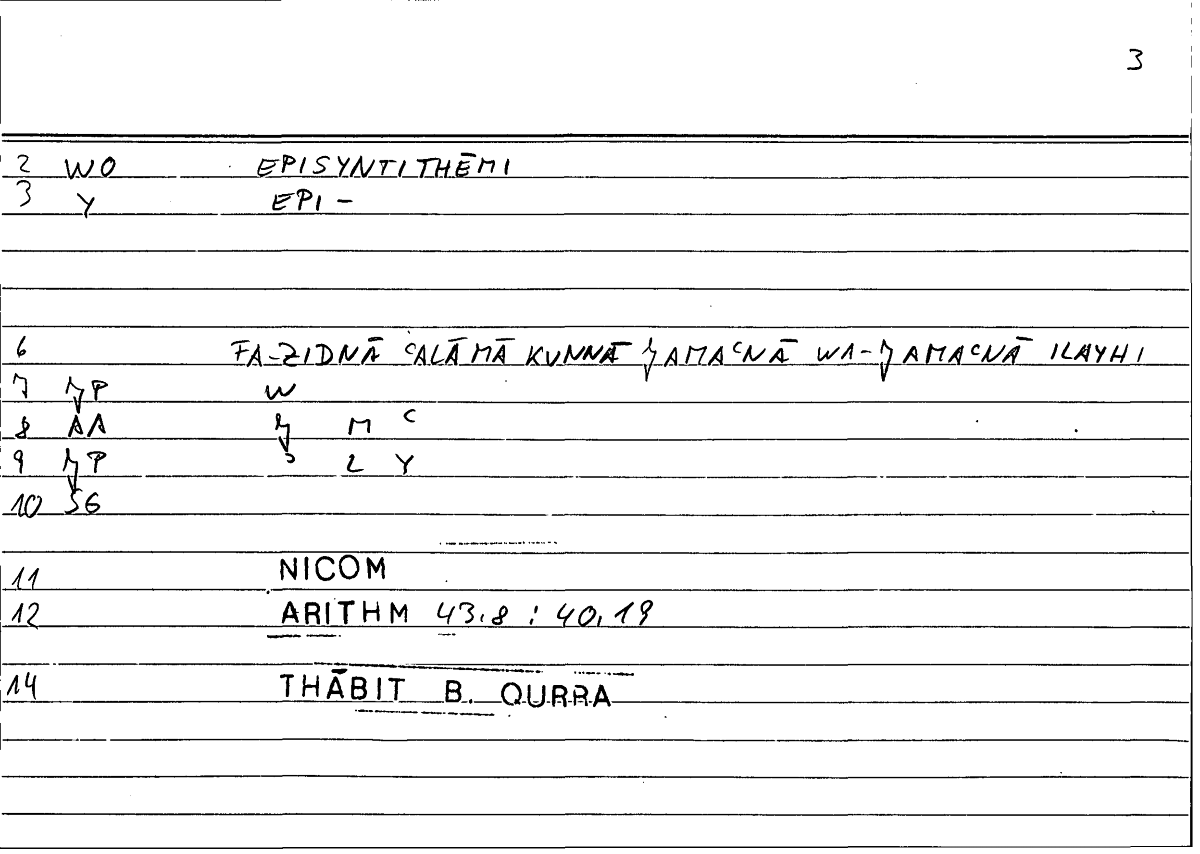 3
2 WO EPISYNTITHĒMI
3 Y EPI-
6 FA-ZIDNĀ ʿALĀ MĀ KUNNĀ JAMAʿNĀ WA-JAMAʿNĀ ILAYHI
7 JP W
8 AA J M ʿ
9 JP ʾ L Y
10 SG
11 NICOM
12 ARITHM 43,8 : 40,19
14 THĀBIT B. QURRA